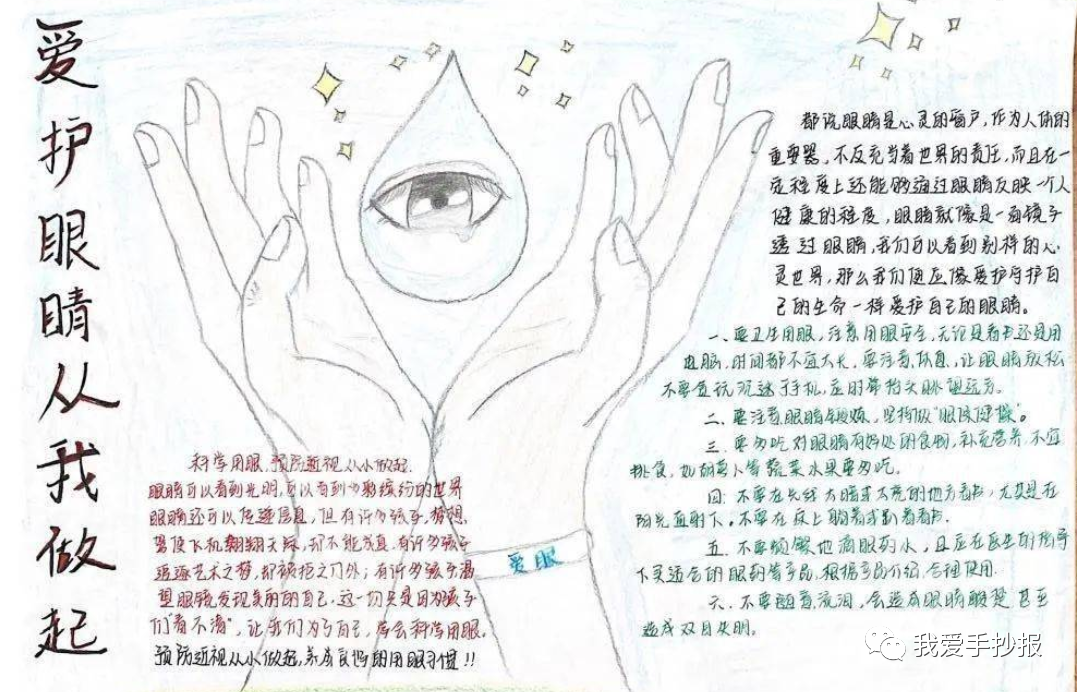 爱护眼睛从我做起
都说眼睛是心灵的窗户,作为人体的
重要器,不反充当着世界的责任,而且在一
定程度上还能够通过眼睛反映一个人
健康的程度,眼睛就像是一面镜子
透过眼睛,我们可以看到别样的心
灵世界,那么我们便应像爱护守护自
己的生命一样爱护自己的眼睛。
一、要卫生用眼,注意用眼安全,无论是看书还是用
电脑,时间都不宜太长,要注意休息,让眼睛放松
不要贪玩沉迷于手机,应时常抬头眺望远方。
二、要注意眼睛锻炼,坚持做“眼保健操”。
三、要多吃对眼睛有好处的食物,补充营养,不宜
挑食,如胡萝卜等蔬菜水果要多吃。
四、不要在光线太暗或太亮的地方看书,尤其是在
阳光直射下。不要在床上躺着或趴着看书。
五、不要频繁地滴眼药水,且应在医生的指导
下买适合的眼药等产品,根据产品介绍,合理使用.
六、不要随着流泪,会造成眼睛酸涩 甚至
造成双目失明。
科学用眼,预防近视从小做起.
眼睛可以看到光明,可以看到多彩缤纷的世界
眼睛还可以传递信息,但有许多孩子,梦想
驾使飞机翱翔天际,却不能成真.有许多孩子
追逐艺术之梦,却被拒之门外;有许多孩子渴
望眼镜发现美的自己.这一切只是因为孩子
们“看不清”,让我们为了自己,学会科学用眼.
预防近视从小做起,养成良好的用眼习惯!!
爱眼
我爱手抄报